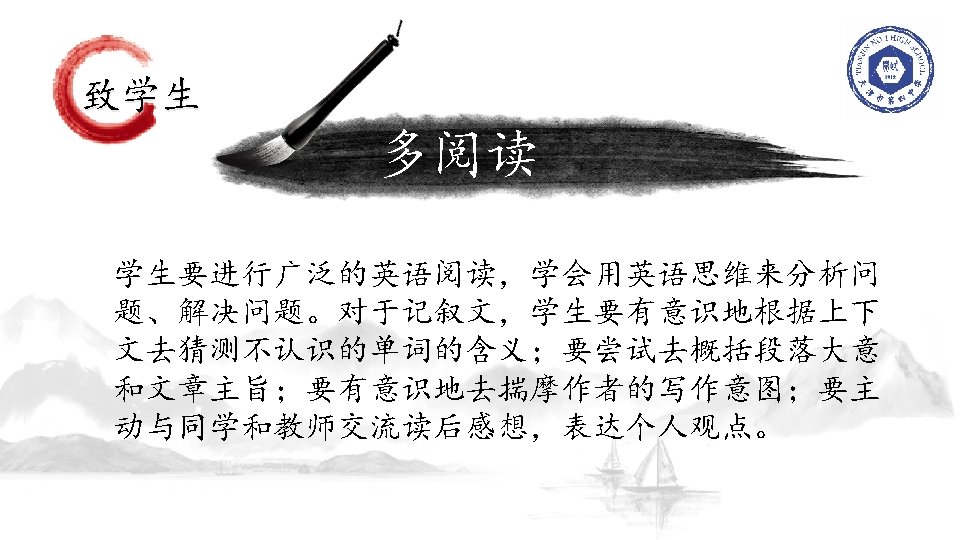 致学生
TIANJIN NO 1 HIGH SCHOOL
1912
多阅读
学生要进行广泛的英语阅读，学会用英语思维来分析问
题、解决问题。对于记叙文，学生要有意识地根据上下
文去猜测不认识的单词的含义；要尝试去概括段落大意
和文章主旨；要有意识地去揣摩作者的写作意图；要主
动与同学和教师交流读后感想，表达个人观点。